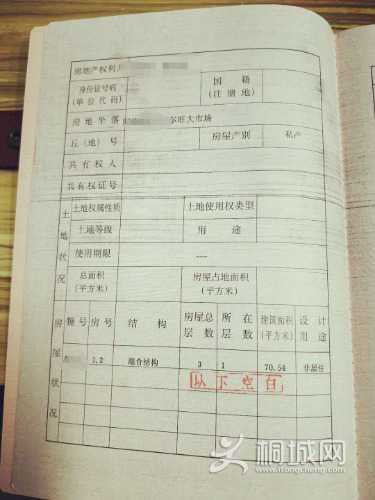 房地产权利人
身份证号码
(单位代码)
国籍
(注册地)
房地坐落 尔旺大市场
丘(地)号 房屋产别 私产
共有权人
共有权证号
土地状况
土地权属性质 土地使用权类型
土地等级 用途
使用期限 ——
总面积
(平方米)
房屋占地面积
(平方米)
房屋状况
幢号 房号 结构 房屋总层数 所在层数 建筑面积(平方米) 设计用途
1.2 混合结构 3 1 70.54 非居住
以下空白
桐城网
itongcheng.com